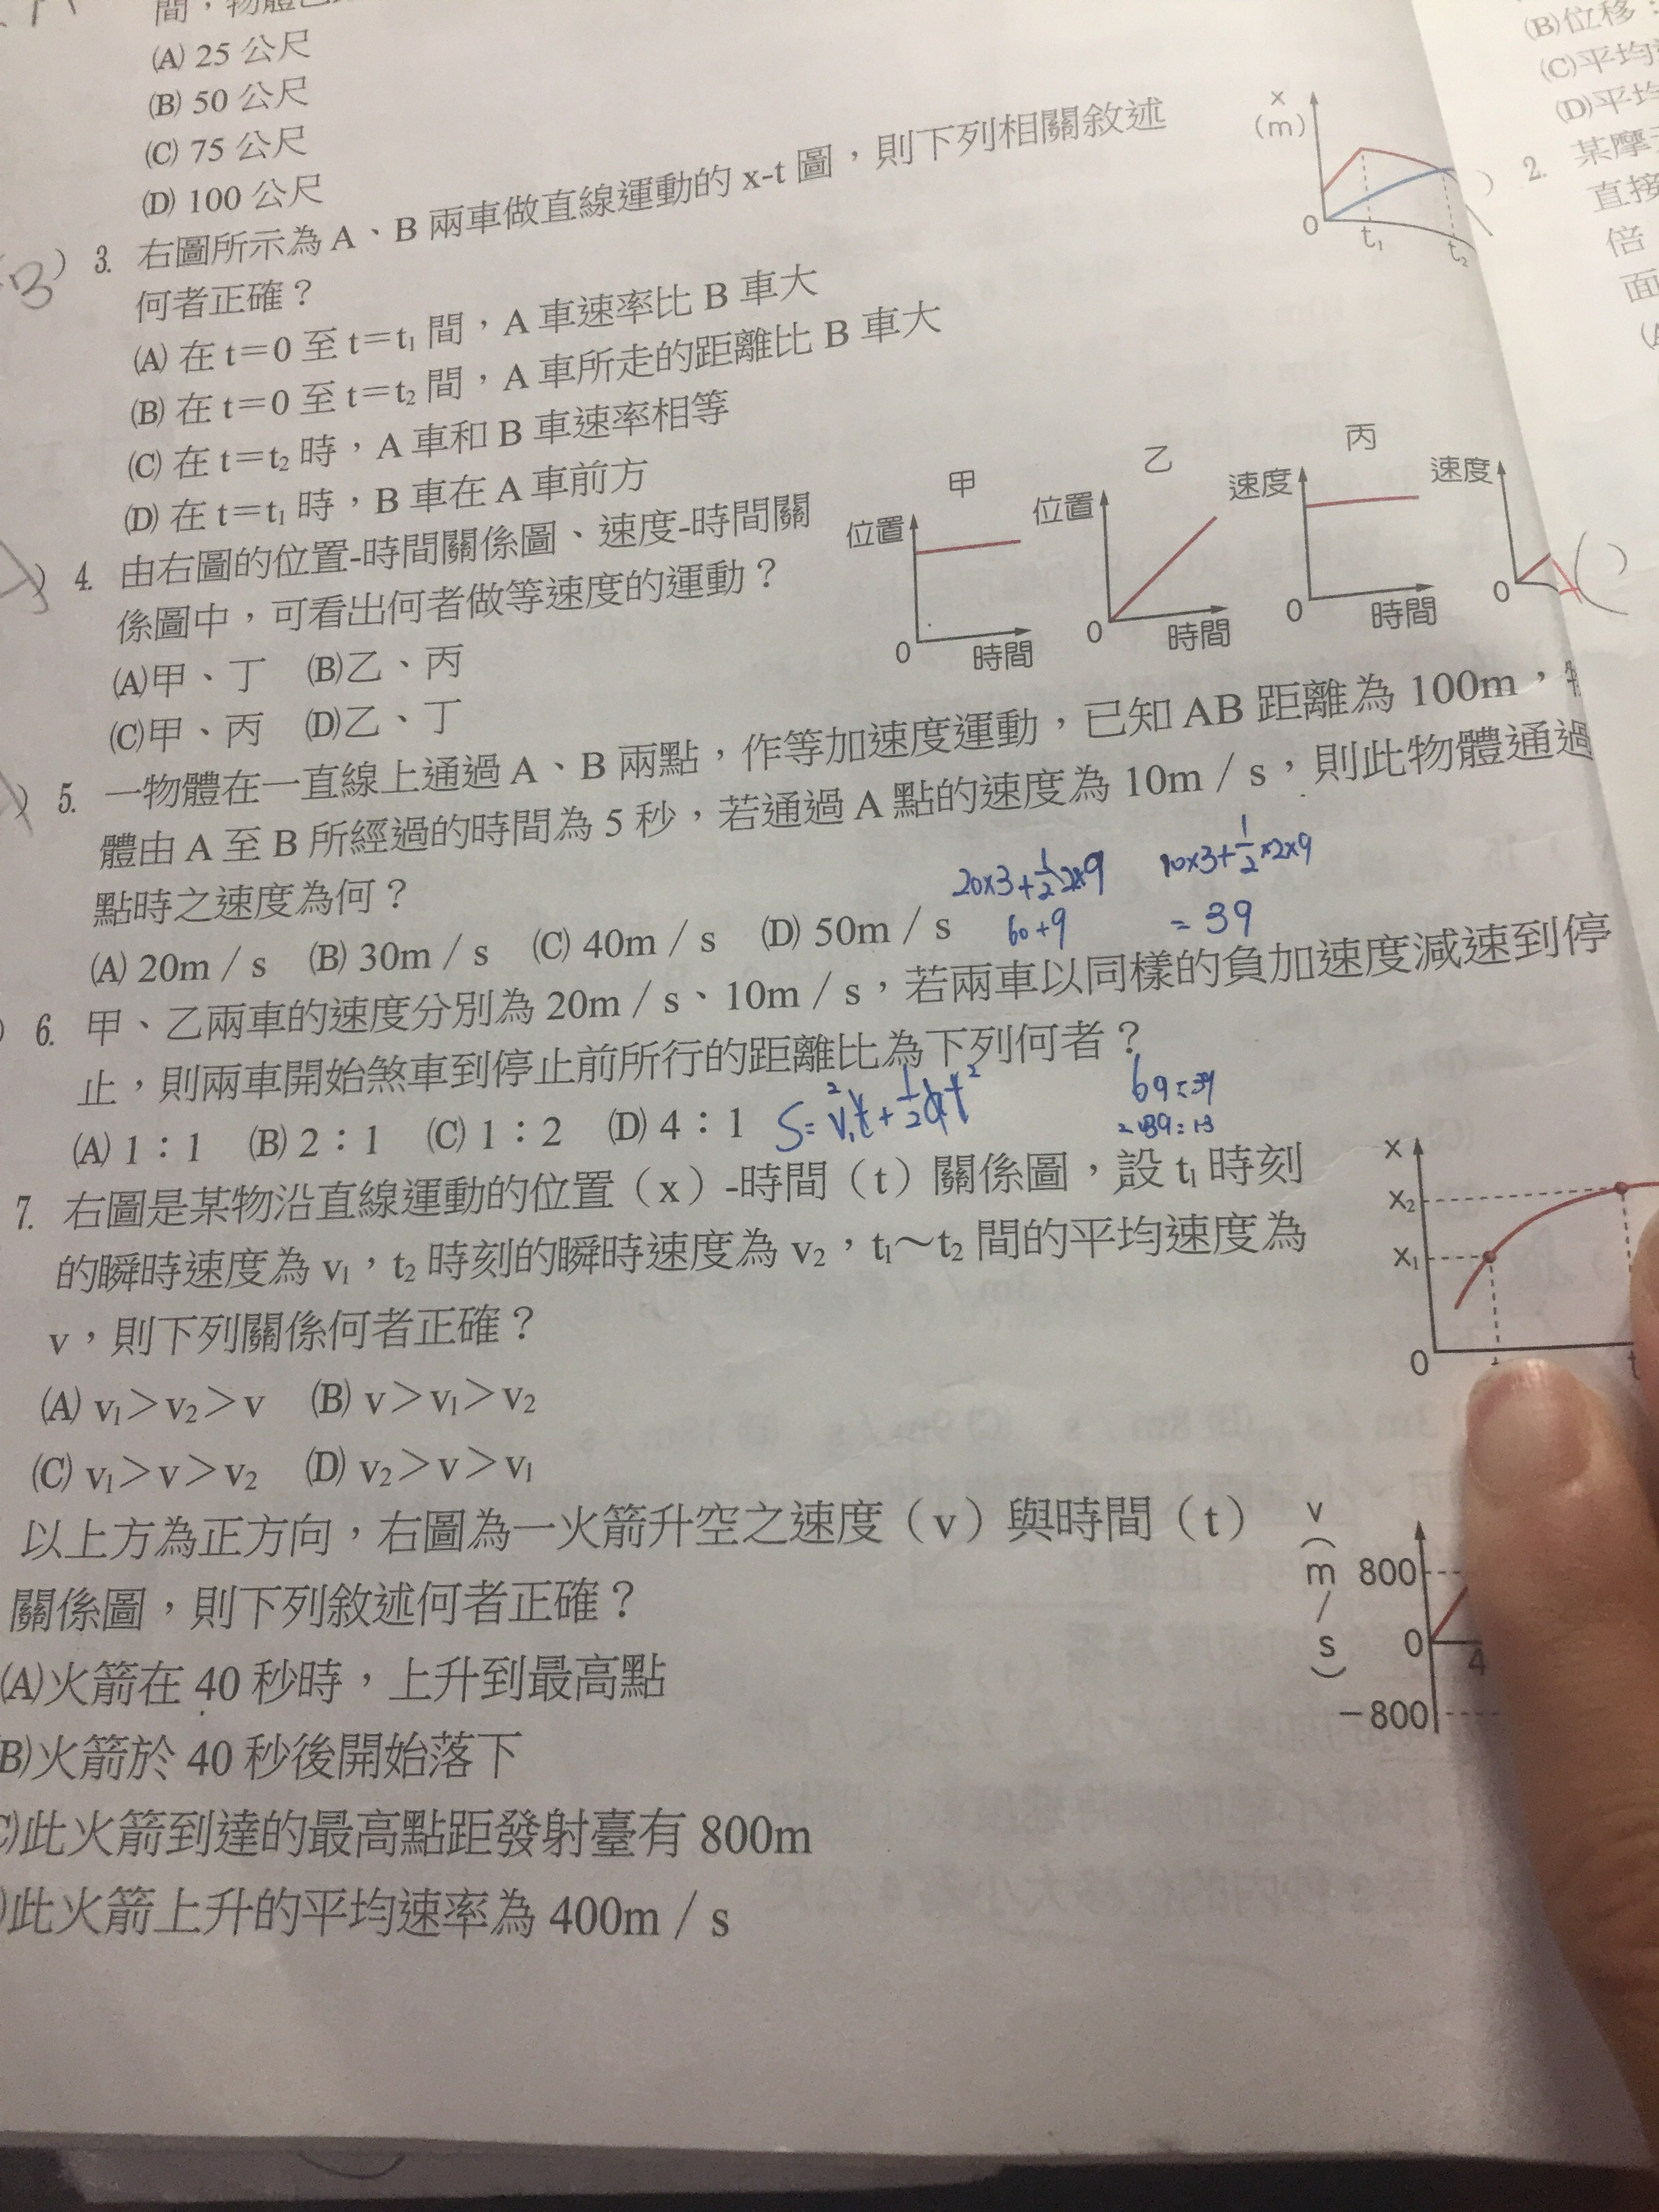 (A) 25 公尺
(B) 50 公尺
(C) 75 公尺
(D) 100 公尺
B ) 3. 右圖所示為 A、B 兩車做直線運動的 x-t 圖,則下列相關敘述
何者正確?
(A) 在 t=0 至 t=t₁ 間,A 車速率比 B 車大
(B) 在 t=0 至 t=t₂ 間,A 車所走的距離比 B 車大
(C) 在 t=t₂ 時,A 車和 B 車速率相等
(D) 在 t=t₁ 時,B 車在 A 車前方
x
(m)
0 t₁ t₂
) 4. 由右圖的位置-時間關係圖、速度-時間關
係圖中,可看出何者做等速度的運動?
(A)甲、丁 (B)乙、丙
(C)甲、丙 (D)乙、丁
甲 乙 丙
位置 位置 速度 速度
0 時間 0 時間 0 時間 0
) 5. 一物體在一直線上通過 A、B 兩點,作等加速度運動,已知 AB 距離為 100m,物
體由 A 至 B 所經過的時間為 5 秒,若通過 A 點的速度為 10m/s,則此物體通過
點時之速度為何?
(A) 20m/s (B) 30m/s (C) 40m/s (D) 50m/s
20×3+1/2×2×9
60+9
10×3+1/2×2×9
=39
) 6. 甲、乙兩車的速度分別為 20m/s、10m/s,若兩車以同樣的負加速度減速到停
止,則兩車開始煞車到停止前所行的距離比為下列何者?
(A) 1:1 (B) 2:1 (C) 1:2 (D) 4:1
69:39
7. 右圖是某物沿直線運動的位置(x)-時間(t)關係圖,設 t₁ 時刻
的瞬時速度為 v₁,t₂ 時刻的瞬時速度為 v₂,t₁~t₂ 間的平均速度為
v,則下列關係何者正確?
(A) v₁>v₂>v (B) v>v₁>v₂
(C) v₁>v>v₂ (D) v₂>v>v₁
x
x₂
x₁
0
以上方為正方向,右圖為一火箭升空之速度(v)與時間(t)
關係圖,則下列敘述何者正確?
(A)火箭在 40 秒時,上升到最高點
B)火箭於 40 秒後開始落下
C)此火箭到達的最高點距發射臺有 800m
)此火箭上升的平均速率為 400m/s
v(m/s)
800
0 4
-800
(B)位移:
(C)平均
(D)平均
) 2. 某摩
直接
倍
面